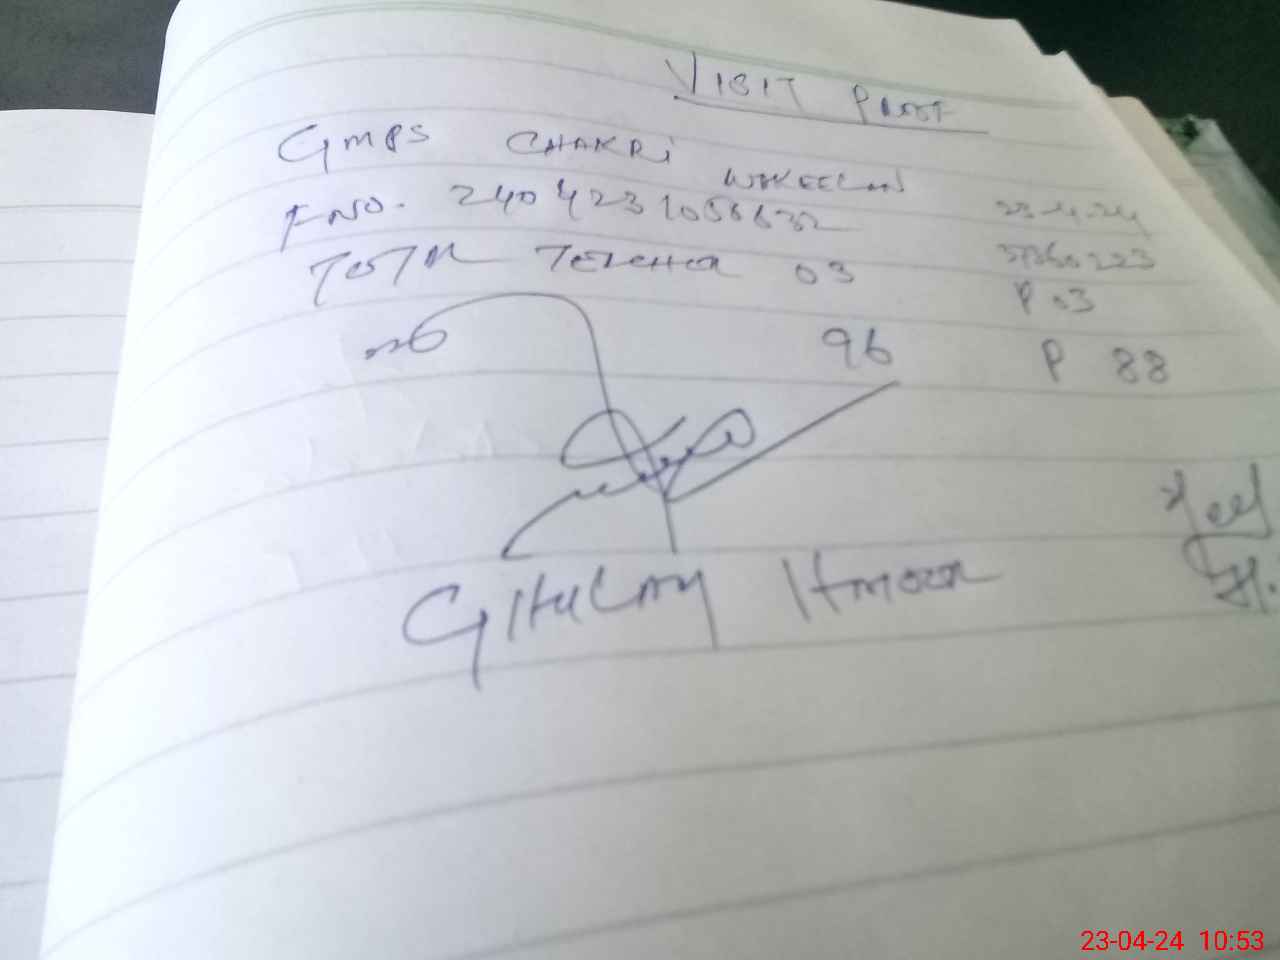 VISIT PROOF
GMPS CHAKRI WAKEELAN
F NO. 2404231056632 23-4-24
TOTAL TEACHER 03 37360223
P 03
96 P 88
GHULAM
23-04-24 10:53